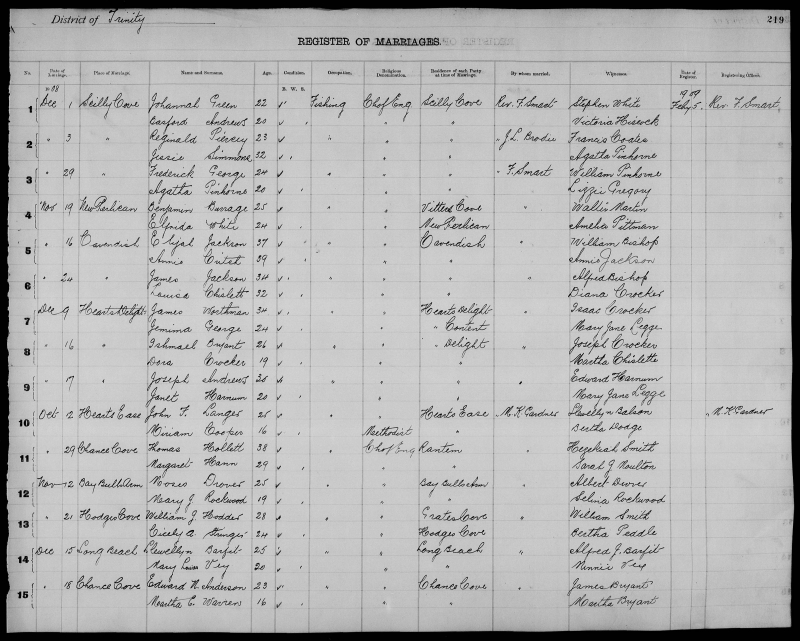 District of Trinity 219
REGISTER OF MARRIAGES.
No. Date of Marriage. Place of Marriage. Name and Surname. Age. Condition. Occupation. Religious Denomination. Residence of each Party at time of Marriage. By whom married. Witnesses. Date of Register. Registering Officer.
B. W. S.
1908 1909
1 Dec 1 Scilly Cove Johannah Green 22 " Fishing Ch of Eng Scilly Cove Rev. F. Smart Stephen White Feby 5. Rev. F. Smart
Andrews 20 " " Victoria Hiscock
2 " 3 " Reginald Piercey 23 " " " " " J. L. Brodie Francis Coates
Jessie Simmons 32 " " Agatha Pinhorne
3 " 29 " Frederick George 24 " " " " " F. Smart William Pinhorne
Agatha Pinhorne 20 " " Lizzie Gregory
4 Nov 19 New Perlican Benjamin Burrage 25 " " " Vitters Cove " Wallis Martin
Elfrida White 24 " New Perlican Amelia Pittman
5 " 16 Cavendish Elijah Jackson 37 " " " Cavendish " William Bishop
Annie 39 " " Annie Jackson
6 " 24 " James Jackson 34 " " " " " Alfred Bishop
Louisa Chislett 32 " " Diana Crocker
7 Dec 9 Hearts Delight James Worthman 34 " " " Hearts Delight " Isaac Crocker
Jemima George 24 " " Content Mary Jane Legge
8 " 16 " Ishmael Bryant 26 " " " " Delight " Joseph Crocker
Dora Crocker 19 " " Martha Chislette
9 " 17 " Joseph Andrews 20 " " " " " Edward Harnum
Janet Harnum 20 " " Mary Jane Legge
10 Oct 2 Hearts Ease John T. Langer 25 " " " Hearts Ease " M. K. Gardner Llewellyn Balson " M. K. Gardner
Miriam Cooper 16 " Methodist " Bertha Dodge
11 " 29 Chance Cove Thomas Hollett 38 " " Ch of Eng Rantem " Hezekiah Smith
Margaret Hann 29 " " Sarah J Moulton
12 Nov 12 Bay Bulls Arm Moses Drover 25 " " " Bay Bulls Arm " Albert Drover
Mary J. Rockwood 19 " " Selina Rockwood
13 " 21 Hodges Cove William J Hodder 28 " " " Grates Cove " William Smith
Cicely A. Stringer 24 " Hodges Cove Bertha Peddle
14 Dec 15 Long Beach Llewellyn Barfit 25 " " " Long Beach " Alfred J. Barfit
Mary Louisa Vey 20 " " Minnie Vey
15 " 18 Chance Cove Edward N. Anderson 23 " " " Chance Cove " James Bryant
Martha C. Warren 16 " " Martha Bryant